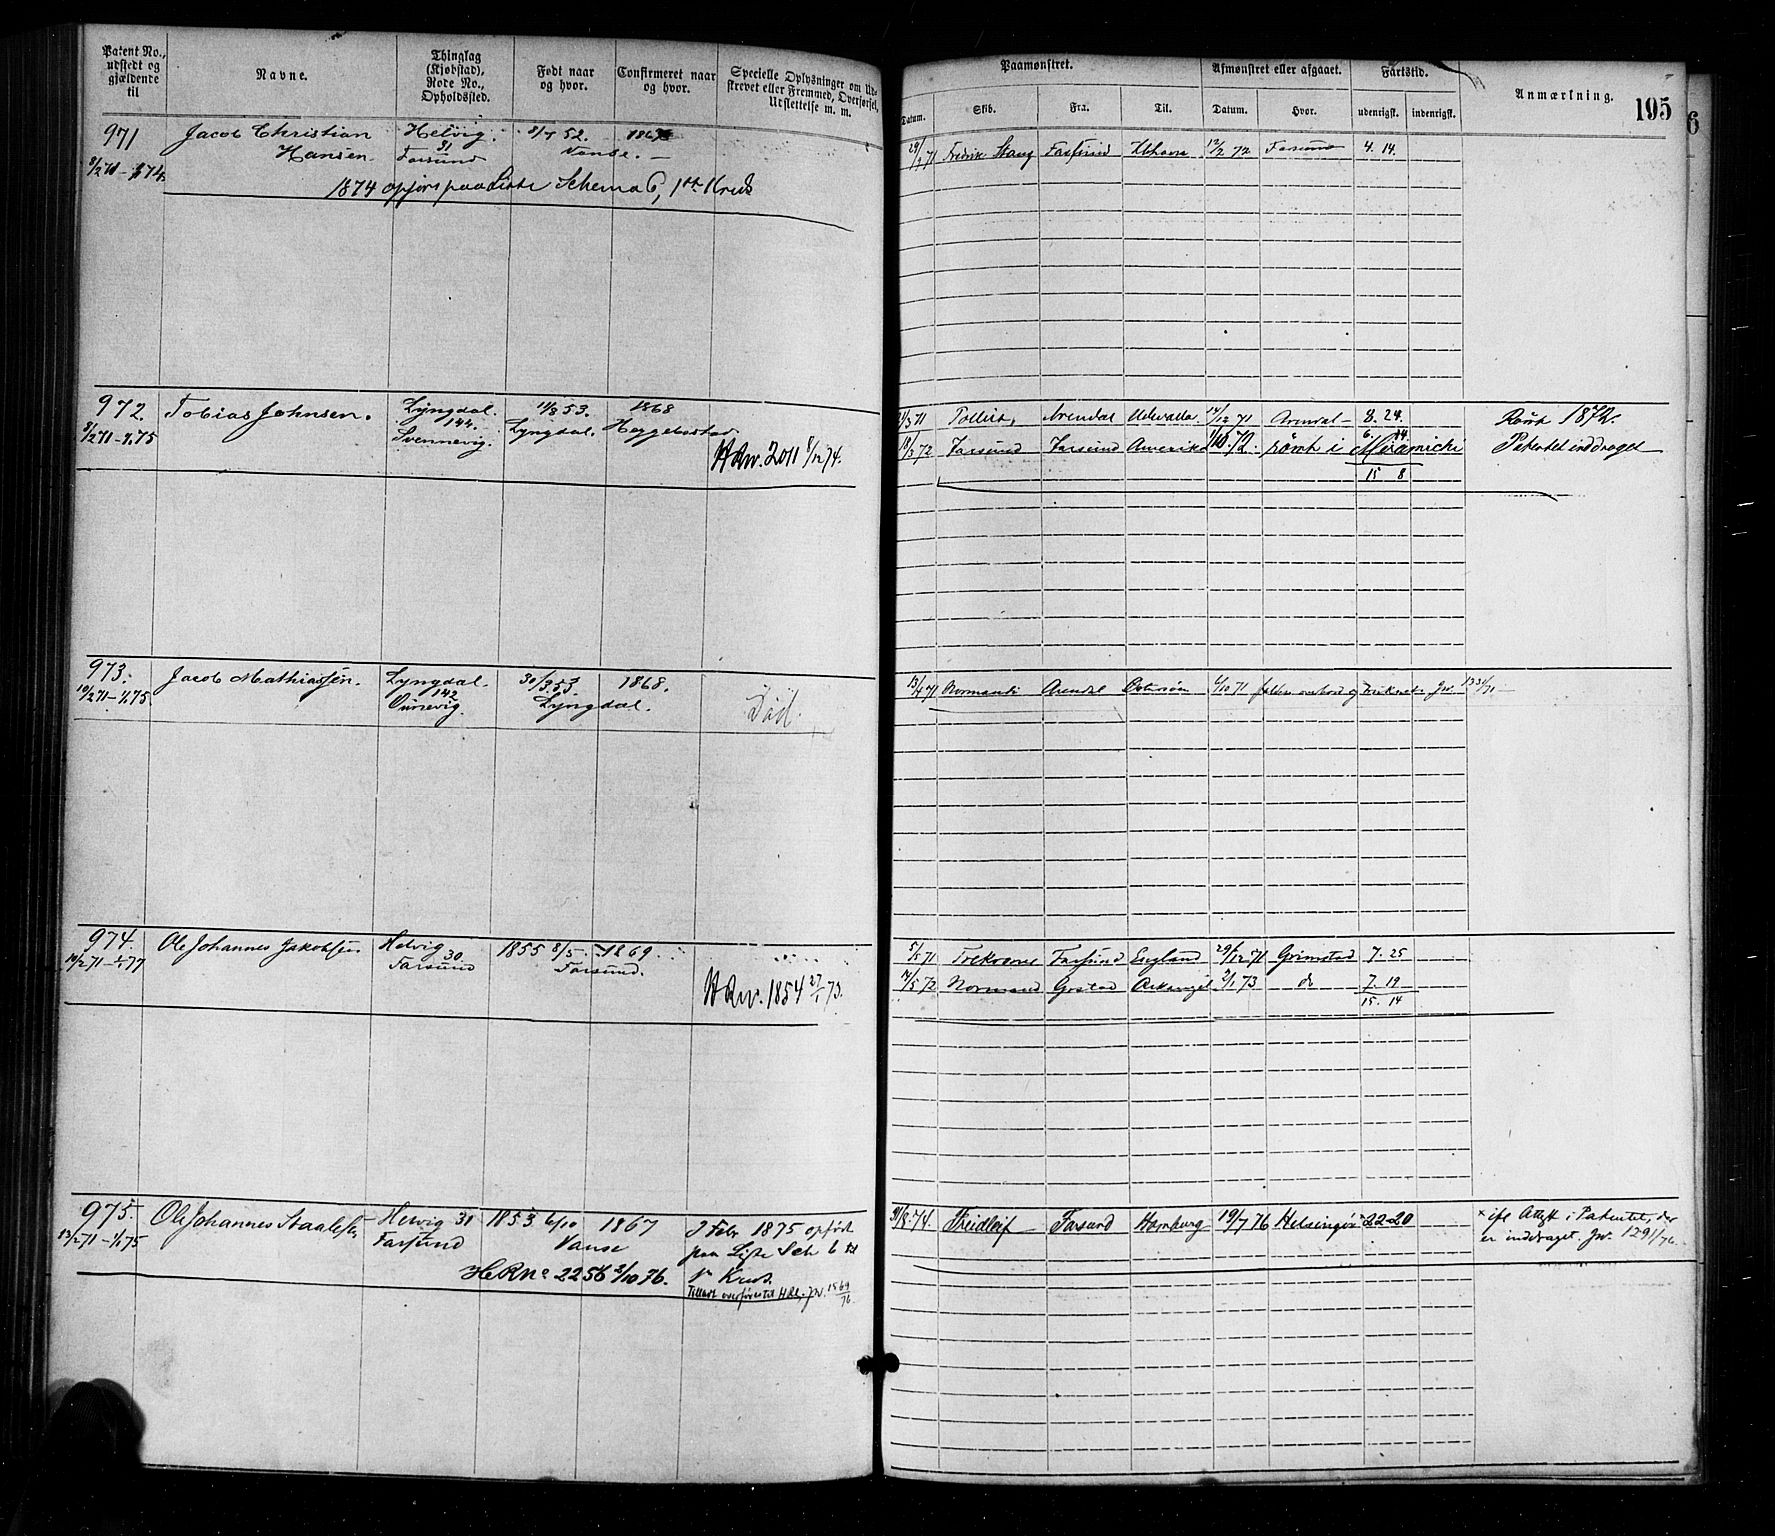 Patent No., udstedt og gjældende til
Navne.
Thinglag (Kjøbstad), Rode No., Opholdssted.
Født naar og hvor.
Confirmeret naar og hvor.
Specielle Oplysninger om Udskrevet eller Fremmed, Overførsel, Udslettelse m. m.
Paamønstret.
Afmønstret eller afgaaet.
Fartstid.
Anmærkning.
195
Datum.
Skib.
Fra.
Til.
Datum.
Hvor.
udenrigsk.
indenrigsk.
6
971
Jacob Christian Hansen
Helvig 31 Farsund
52. Vanse.
1874 opført paa Liste Schema 6, 1ste Kreds
Fredrik Stang Farsund 12/2 72 Farsund 4. 14.
972.
8/2 71 - 1/1 75
Tobias Johnsen.
Lyngdal. 144. Svennevig.
11/8 53. Lyngdal.
1868 Heggebostad
H Rw. 2011 8/12 74.
Arendal Udevalla 14/12 71 Arendal 8. 24.
Rømt 1872.
10/3 72 Farsund Farsund Amerika 1/10 72. rømt i Miramichi
6. 14
15 8
Patentet inddraget
973.
10/2 71 - 1/1 75
Jacob Mathiassen.
Lyngdal. 142
30/3 53. Lyngdal.
1868.
Død.
13/4 71 Normandi Arendal Østersøen 6/10 71 falden overbord og druknede Jr. 1331/71
974.
10/2 71 - 1/1 77
Ole Johannes Jakobsen
Helvig 30 Farsund
1855 8/5 Farsund.
1869.
H Rw. 1854 27/1 73.
5/5 71 Farsund England 29/12 71 Grimstad 7. 25
14/5 72 Normand Arkangel 2/1 73 do 7. 19
15. 14
975.
13/2 71 - 1/1 75
Ole Johannes Staalesen
Helvig 31 Farsund
1853 6/10 Vanse
1867
I Febr 1875 opført paa Liste Sch 6 til 1ste Kreds.
HeRNo 2256 2/10 76.
Tilladt overføres til HRl. Jr. 1569/76.
31/8 74. Freidleif Farsund Hamburg 19/7 76 Helsingør × 22-20
× ifl Attest i Patentet, der er inddraget. Jr. 1291/76.